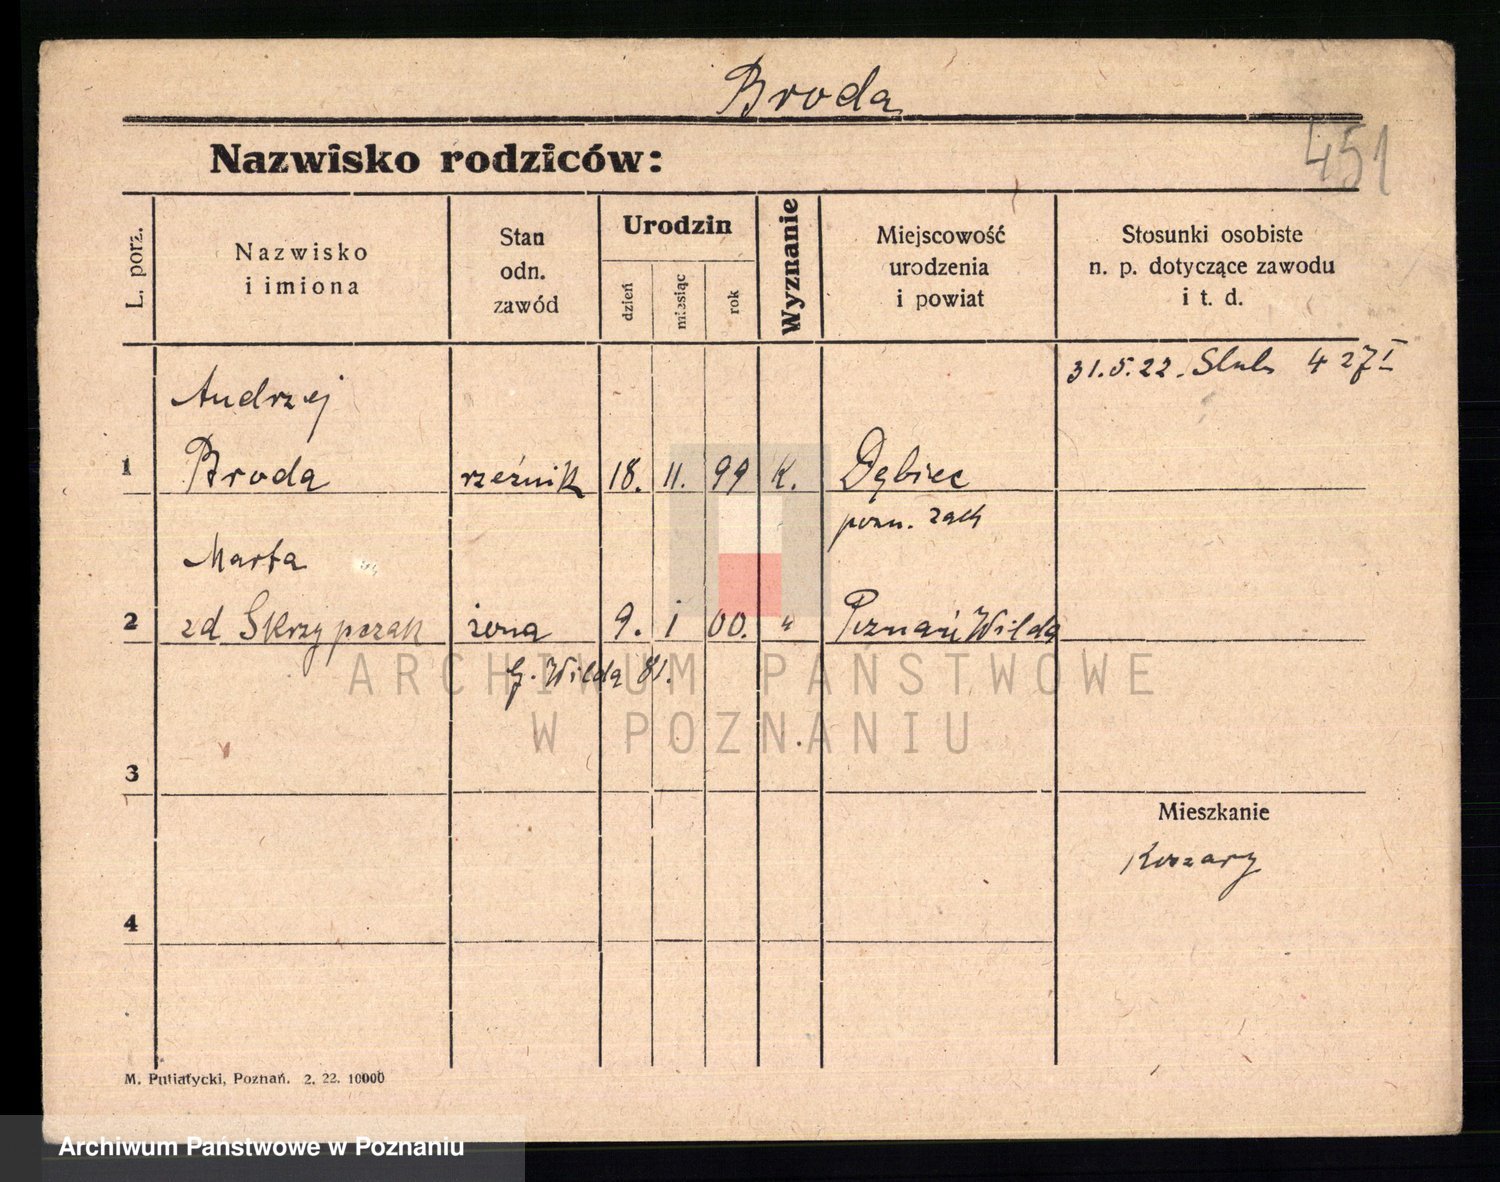 Broda
451
Nazwisko rodziców:
L. porz.
Nazwisko
i imiona
Stan
odn.
zawód
Urodzin
dzień
miesiąc
rok
Wyznanie
Miejscowość
urodzenia
i powiat
Stosunki osobiste
n. p. dotyczące zawodu
i t. d.
31.5.22. 4 27 I
Andrzej
1 Broda rzeźnik 18. 11. 99 K. Dębiec
pozn. zach
Marta
2 zd Skrzypczak żona 9. i 00. " Poznań Wilda
G. Wilda 81.
3
Mieszkanie
Koszary
4
M. Putiatycki, Poznań. 2. 22. 10000
ARCHIWUM PAŃSTWOWE
W POZNANIU
Archiwum Państwowe w Poznaniu